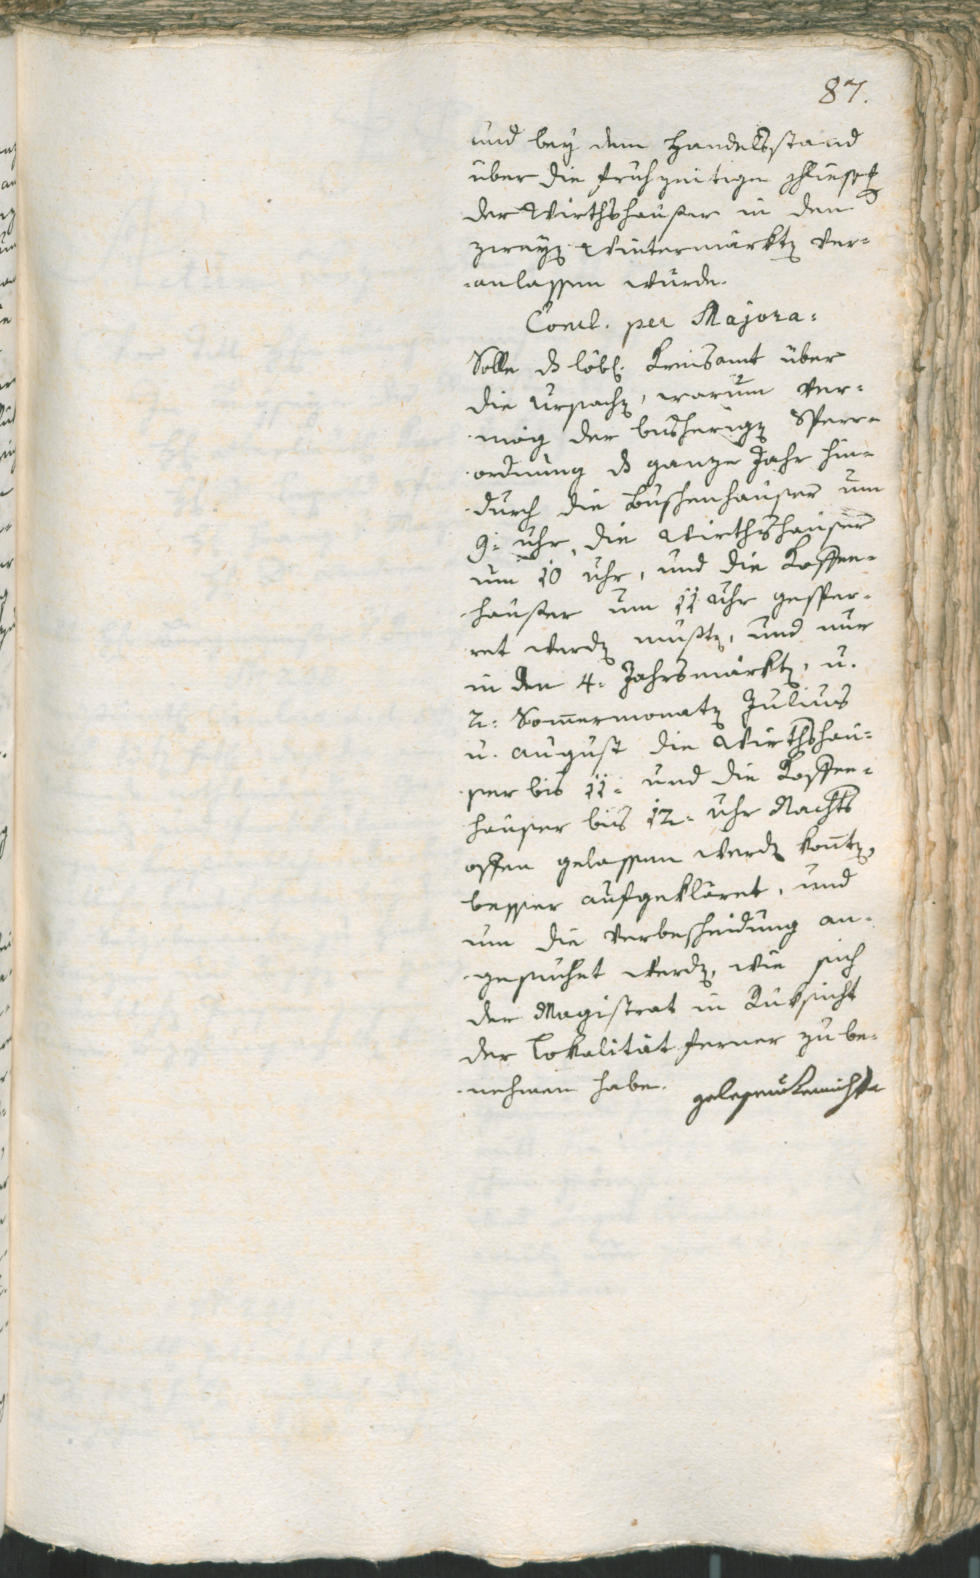 87.
und bey dem Handelsstand
über die frühzeitige schliessg
der Wirthshäuser in den
zweyen Wintermärkten ver=
=anlassen würde.
Concl. per Majora:
Solle ds löbl. Kreisamt über
die Ursache, warum ver=
mög der bisherigen Sperr=
ordnung ds ganze Jahr hin=
durch die Buschenhäuser um
9: Uhr, die Wirthshäuser
um 10 Uhr, und die Kaffee=
häuser um 11 Uhr gesper=
ret werden müssten, und nur
in den 4: Jahrsmärkten, u.
2: Sommermonaten Julius
u. August die Wirthshäu=
ser bis 11: und die Kaffee=
häuser bis 12: Uhr Nachts
offen gelassen werden könten,
besser aufgekläret, und
um die Verbescheidung an=
gesuchet werden, wie sich
der Magistrat in Rüksicht
der Lokalität ferner zu be=
nehmen habe. gelesen